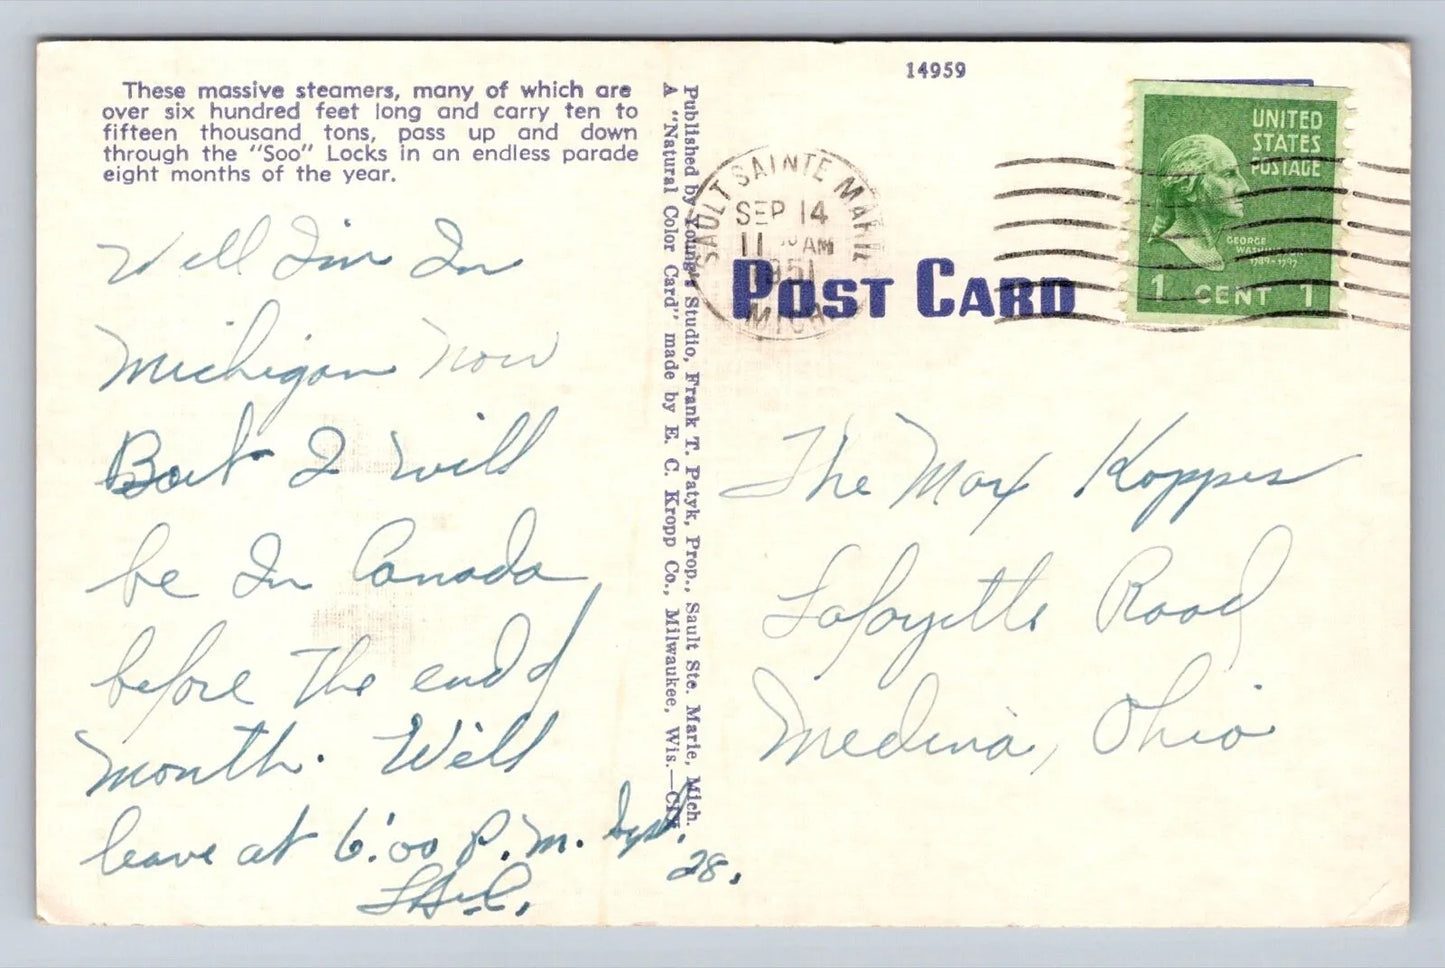 14959
These massive steamers, many of which are
over six hundred feet long and carry ten to
fifteen thousand tons, pass up and down
through the "Soo" Locks in an endless parade
eight months of the year.
Well I'm In
Michigan now
But I will
be In Canada
before the end of
month. We'll
leave at 6:00 P.M. Sept.
28.
Published by Young's Studio, Frank T. Patyk, Prop., Sault Ste. Marie, Mich.
A "Natural Color Card" made by E. C. Kropp Co., Milwaukee, Wis.
SAULT SAINTE MARIE
SEP 14
11 AM
1951
MICH.
POST CARD
UNITED
STATES
POSTAGE
GEORGE
WASHINGTON
1789-1797
1 CENT 1
The Max Koppes
Lafayette Road
Medina, Ohio